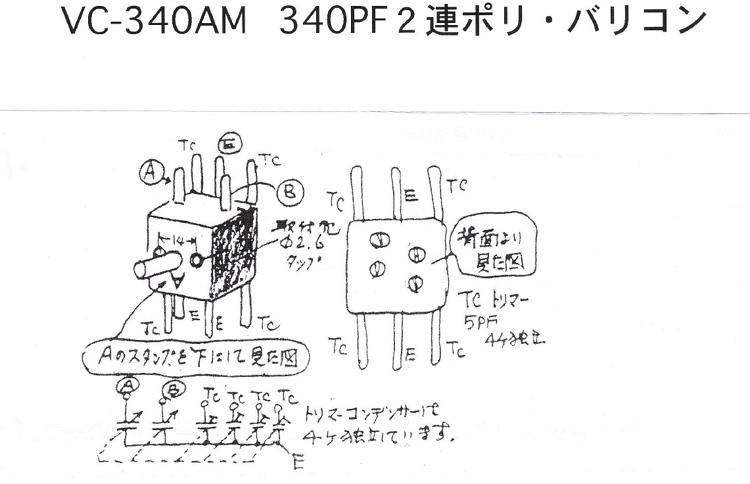 VC-340AM 340PF2連ポリ・バリコン
TC
E
TC
A
B
14
取付ネジ
Φ2.6
タップ
TC
E
E
TC
Aのスタンプを下にして見た図
TC
E
TC
背面より
見た図
TC
E
TC
TC トリマー
5PF
4ケ独立
A
B
TC
TC
TC
TC
E
トリマーコンデンサーは
4ケ独立しています。